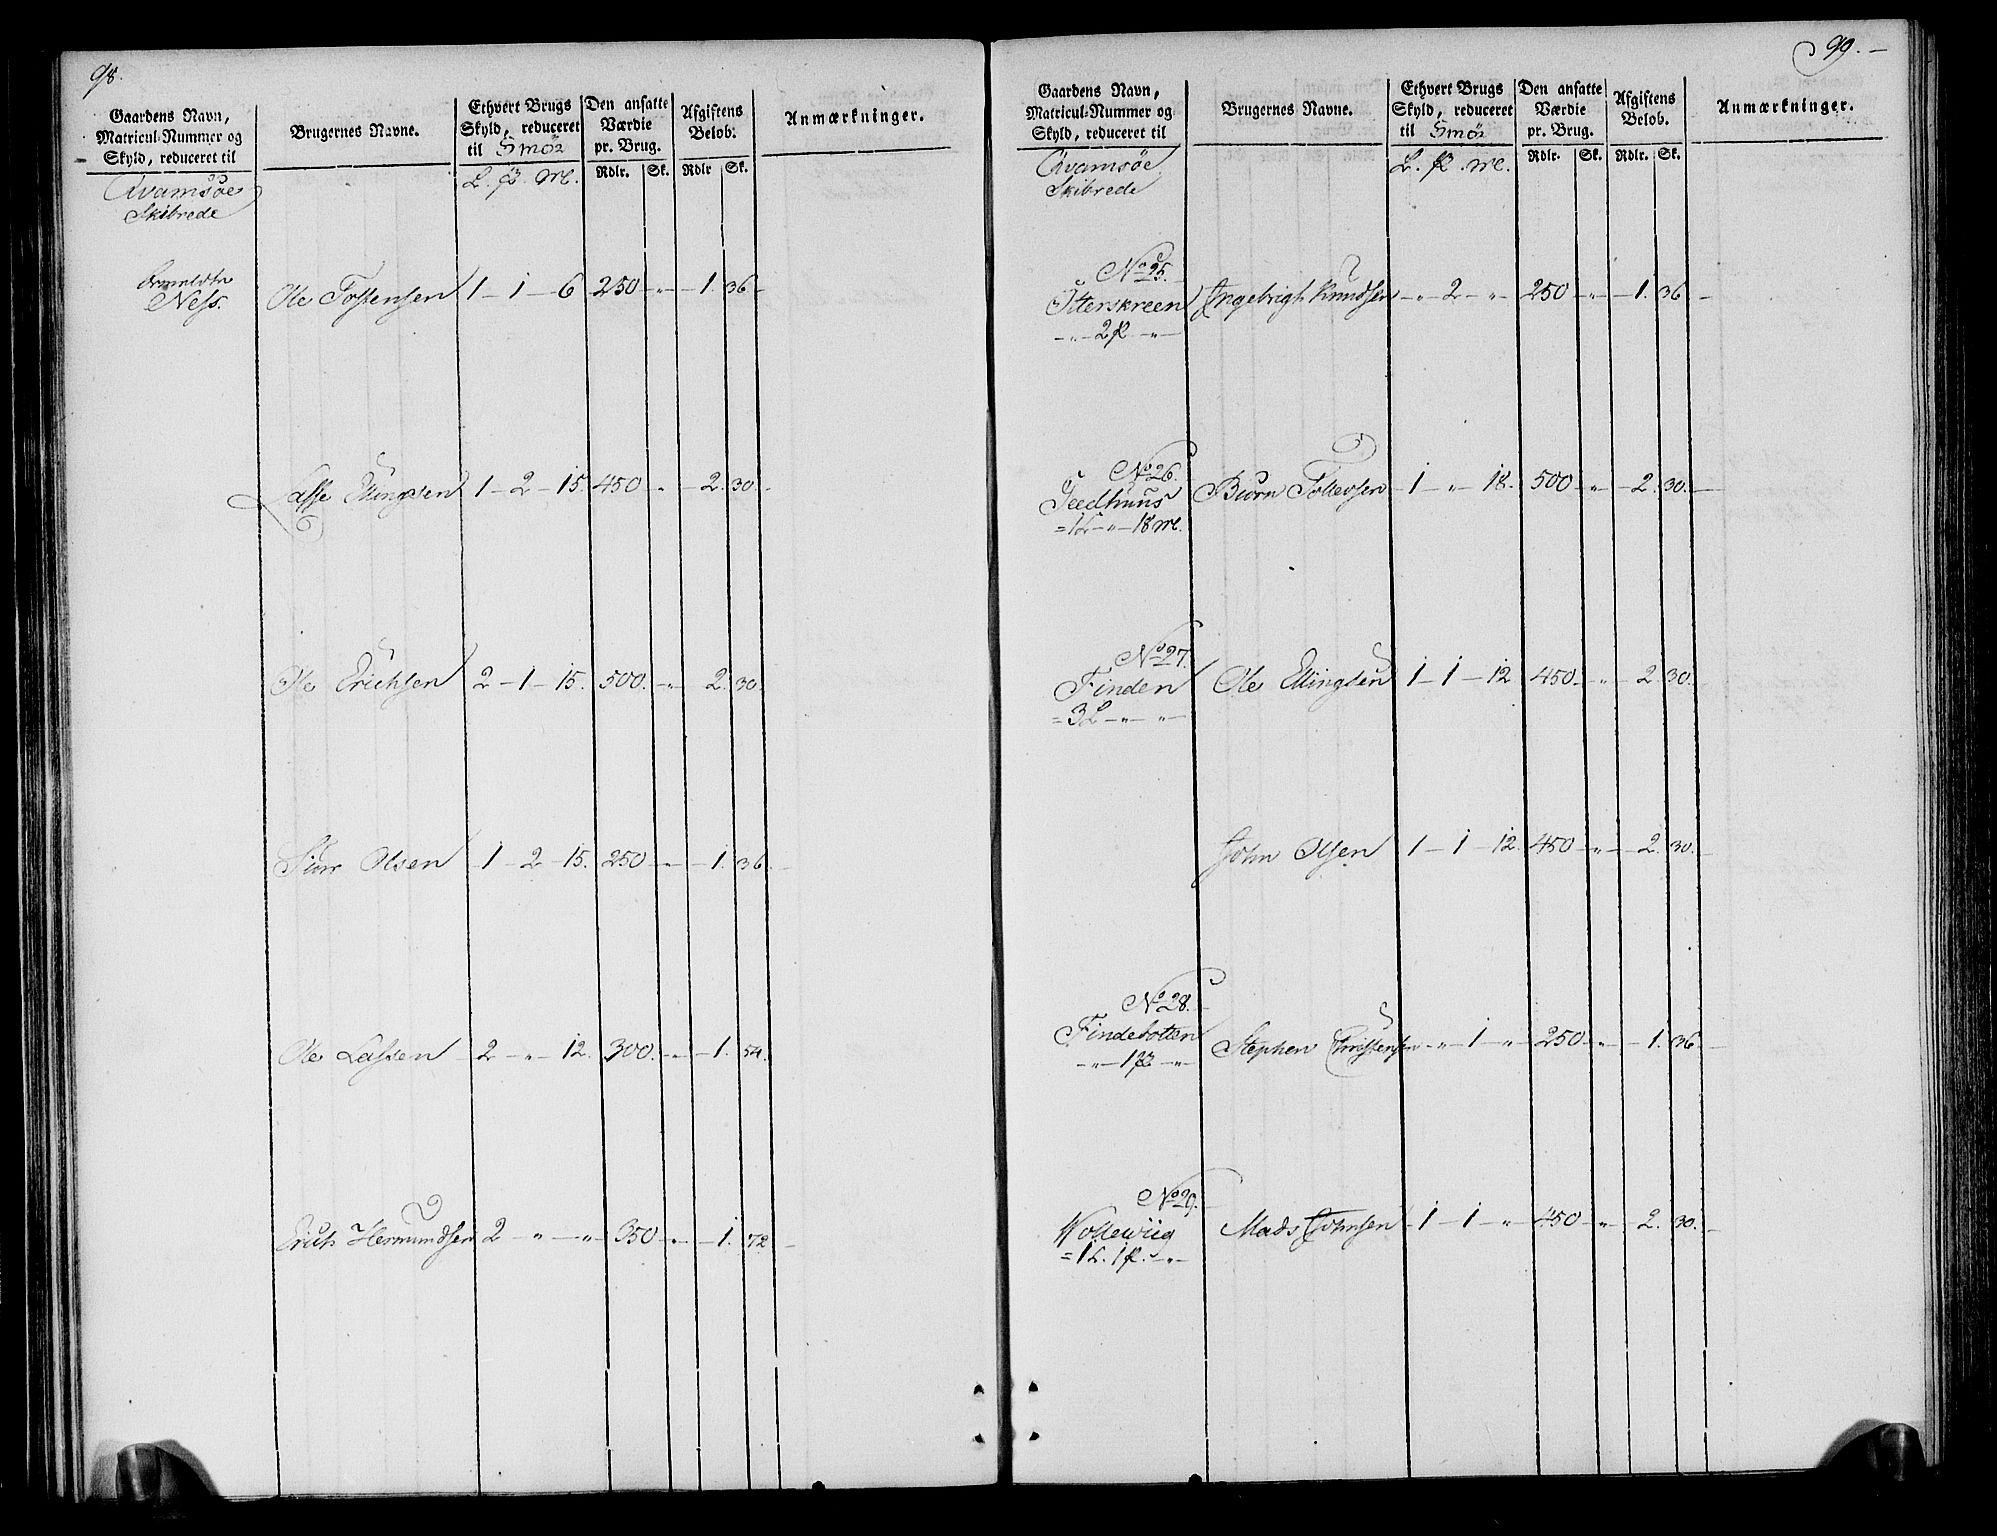 98.
Gaardens Navn, Matricul-Nummer og Skyld, reduceret til
Brugernes Navne.
Ethvert Brugs Skyld, reduceret til Smör
Den ansatte Værdie pr. Brug.
Afgiftens Beløb.
Anmærkninger.
L. . Mk.
Rdlr. Sk. Rdlr Sk.
Qvamsöe
Skibrede
Ness. Ole Tostensen 1 – 1 – 6 250 - „ - 1. 36 -
Lasse Ellingsen 1 – 2 – 15. 450 „ - 2. 30 -
Ole Erichsen 2 – 1 – 15. 500. - „ - 2. 30.
Siur Olsen 1 – 2 – 15. 250 - „ - 1. 36. -
Ole Lassen 2 – „ – 12. 300. - „ - 1. 54.
Erich Hermundsen 2 – „ – „ 350 - „ - 1. 72 -
99. –
Gaardens Navn, Matricul-Nummer og Skyld, reduceret til
Brugernes Navne.
Ethvert Brugs Skyld, reduceret til Smör
Den ansatte Værdie pr. Brug.
Afgiftens Beløb.
Anmærkninger.
L. . Mk.
Rdlr. Sk. Rdlr. Sk.
Qvamsöe
Skibrede
No 25.
Ÿtterskreen Ingebrigt Knudsen - „ - 2 - „ - 250 - „ - 1. 36. -
- „ - 2 - „ -
No 26.
Biörn Tollevsen 1 - „ - 18. 500 - „ - 2. 30. -
= 1 L - „ - 18 Mk.
No 27.
Finden Ole Ellingsen 1 – 1 – 12 450 - „ - 2. 30. -
= 3 L - „ - „ -
John Olsen 1 – 1 – 12. 450 - „ - 2. 30. -
No 28.
Findebotten Stephen Christensen - „ - 1 - „ - 250 - „ - 1. 36 -
- „ - 1 - „ -
No 29.
Wollewiig Mads Johnsen 1 – 1 - „ - 450 - „ - 2. 30. -
= 1 L. 1 . - „ -